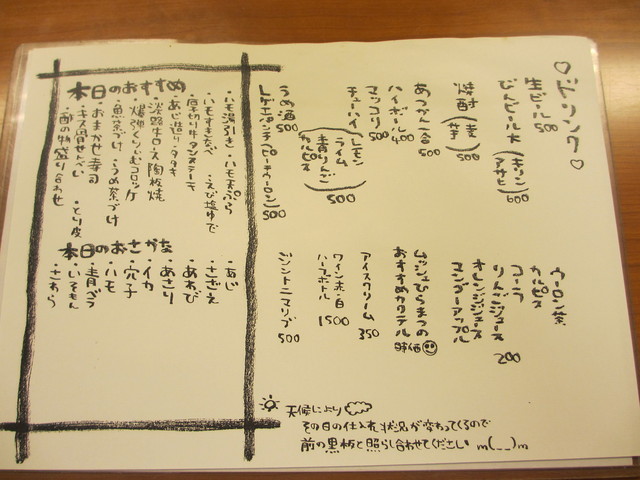 ♡ドリンク♡
生ビール 500
びんビール大 (キリン アサヒ) 600
焼酎 (麦 芋) 500
あつかん一合 500
ハイボール 400
マッコリ 500
チューハイ (レモン ライム 青りんご カルピス) 500
うめ酒 500
レゲエパンチ (ピーチウーロン) 500
ウーロン茶
カルピス
コーラ
りんごジュース
オレンジジュース
マンゴーアップル
200
ムッシュひらまつの
おすすめカクテル
時価
アイスクリーム 350
ワイン 赤・白
ハーフボトル 1500
ジントニック 500
本日のおすすめ
・ハモ湯引き ・ハモ天ぷら
・ハモすきなべ ・えび塩ゆで
・厚切り牛タンステーキ
・あじ造り・タタキ
・淡路ホロス陶板焼
・爆弾くりぃむコロッケ
・魚茶づけ ・うめ茶づけ
・おまかせ寿司
・キス骨せんべい ・とり皮
・酢の物盛り合わせ
本日のおさかな
・あじ
・さざえ
・あわび
・あさり
・イカ
・穴子
・ハモ
・青ベラ
・いそもん
・さわら
天候により
その日の仕入れ状況が変わってくるので
前の黒板と照らし合わせてください m(__)m